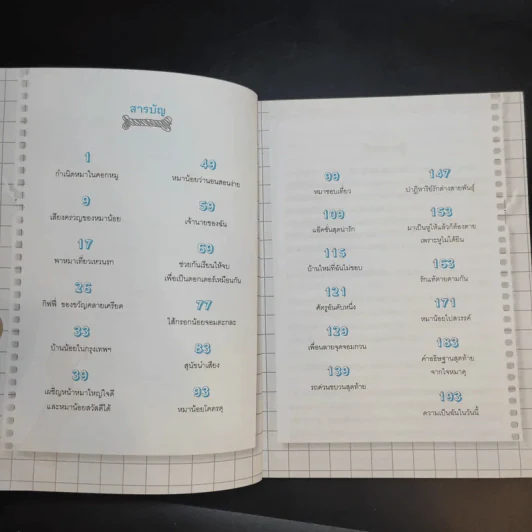 สารบัญ
1
กำเนิดหมาในคอกหมู
9
เสียงครวญของหมาน้อย
17
พาหมาเที่ยวเหวนรก
26
กิฟฟี่ ของขวัญคลายเครียด
33
บ้านน้อยในกรุงเทพฯ
39
เผชิญหน้าหมาใหญ่ใจดี
และหมาน้อยสวัสดีได้
49
หมาน้อยว่านอนสอนง่าย
59
เจ้านายของฉัน
69
ช่วยกันเรียนให้จบ
เพื่อเป็นดอกเตอร์เหมือนกัน
77
ไส้กรอกน้อยจอมตะกละ
83
สุนัขนำเสียง
93
หมาน้อยโคตรดุ
99
หมาชอบเดี่ยว
109
แอ๊คชั่นสุดน่ารัก
115
บ้านใหม่ที่ฉันไม่ชอบ
121
ศัตรูอันดับหนึ่ง
129
เพื่อนลายจุดจอมกวน
139
รถด่วนขบวนสุดท้าย
147
ปาฏิหาริย์รักต่างสายพันธุ์
153
มาเป็นหูให้แล้วก็ต้องตาย
เพราะหูไม่ได้ยิน
163
รักแท้ตายตามกัน
171
หมาน้อยไปสวรรค์
183
คำอธิษฐานสุดท้าย
จากใจหมาดุ
193
ความเป็นฉันในวันนี้